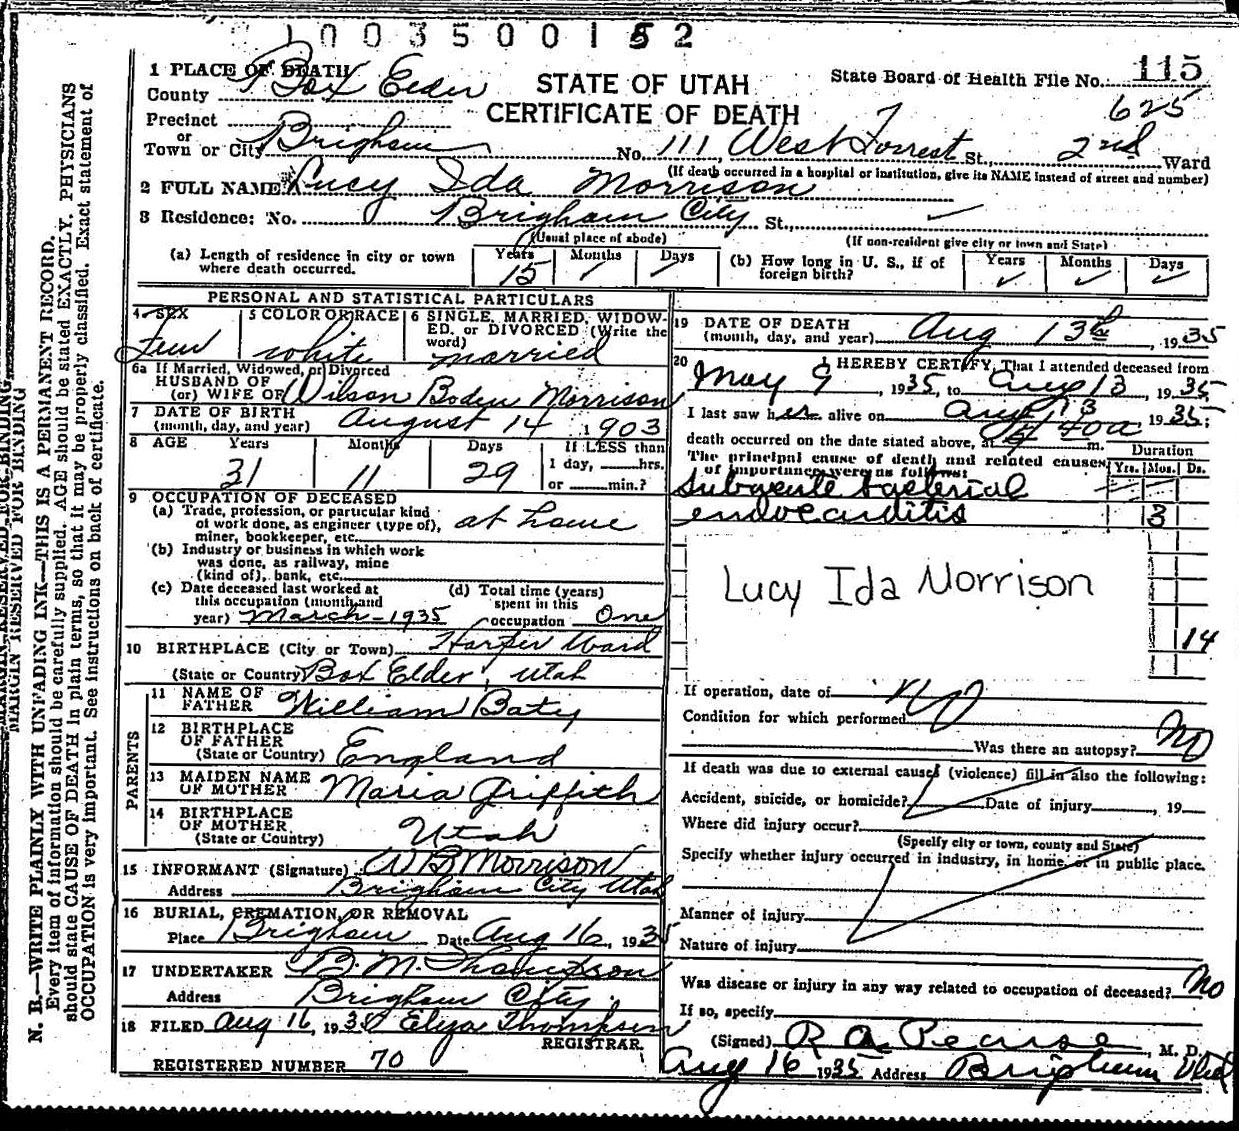 1003500152
115
1 PLACE OF DEATH
County Box Elder
STATE OF UTAH
CERTIFICATE OF DEATH
State Board of Health File No. 115
625
Precinct
or
Town or City Brigham No. 111, West Forrest St., 2nd Ward
(If death occurred in a hospital or institution, give its NAME instead of street and number)
2 FULL NAME Lucy Ida Morrison
3 Residence: No. Brigham City St.,
(Usual place of abode) (If non-resident give city or town and State)
(a) Length of residence in city or town where death occurred. Years 15 Months Days
(b) How long in U. S., if of foreign birth? Years Months Days
PERSONAL AND STATISTICAL PARTICULARS
4 SEX Fem
5 COLOR OR RACE white
6 SINGLE, MARRIED, WIDOWED, or DIVORCED (Write the word) married
6a If Married, Widowed, or Divorced
HUSBAND OF
(or) WIFE OF Wilson Boden Morrison
7 DATE OF BIRTH
(month, day, and year) August 14 1903
8 AGE Years 31 Months 11 Days 29
If LESS than
1 day, hrs.
or min.?
9 OCCUPATION OF DECEASED
(a) Trade, profession, or particular kind
of work done, as engineer (type of),
miner, bookkeeper, etc. at home
(b) Industry or business in which work
was done, as railway, mine
(kind of), bank, etc.
(c) Date deceased last worked at
this occupation (month and
year) March-1935
(d) Total time (years)
spent in this
occupation One
10 BIRTHPLACE (City or Town) Harper Ward
(State or Country) Box Elder, Utah
PARENTS
11 NAME OF
FATHER William Baty
12 BIRTHPLACE
OF FATHER
(State or Country) England
13 MAIDEN NAME
OF MOTHER Maria Griffith
14 BIRTHPLACE
OF MOTHER
(State or Country) Utah
15 INFORMANT (Signature) W B Morrison
Address Brigham City Utah
16 BURIAL, CREMATION, OR REMOVAL
Place Brigham Date Aug 16, 1935
17 UNDERTAKER B. M. Thompson
Address Brigham City.
18 FILED Aug 16, 1935 Eliza Thompson
REGISTRAR.
REGISTERED NUMBER 70
19 DATE OF DEATH
(month, day, and year) Aug 13th, 1935
20 I HEREBY CERTIFY, That I attended deceased from
May 9, 1935, to Aug 13, 1935,
I last saw her alive on Aug 13 1935;
death occurred on the date stated above, at 40a m.
The principal cause of death and related causes
of importance were as follows:
Duration
Yrs. Mos. Ds.
Subacute bacterial
endocarditis 3
Lucy Ida Morrison
14
If operation, date of no
Condition for which performed
Was there an autopsy? No
If death was due to external causes (violence) fill in also the following:
Accident, suicide, or homicide? Date of injury, 19
Where did injury occur?
(Specify city or town, county and State)
Specify whether injury occurred in industry, in home, or in public place.
Manner of injury
Nature of injury
Was disease or injury in any way related to occupation of deceased? No
If so, specify
(Signed) R A Pearse, M. D.
Aug 16 1935 Address Brigham Utah
MARGIN RESERVED FOR BINDING
N. B.—WRITE PLAINLY WITH UNFADING INK—THIS IS A PERMANENT RECORD.
Every item of information should be carefully supplied. AGE should be stated EXACTLY. PHYSICIANS
should state CAUSE OF DEATH in plain terms, so that it may be properly classified. Exact statement of
OCCUPATION is very important. See instructions on back of certificate.